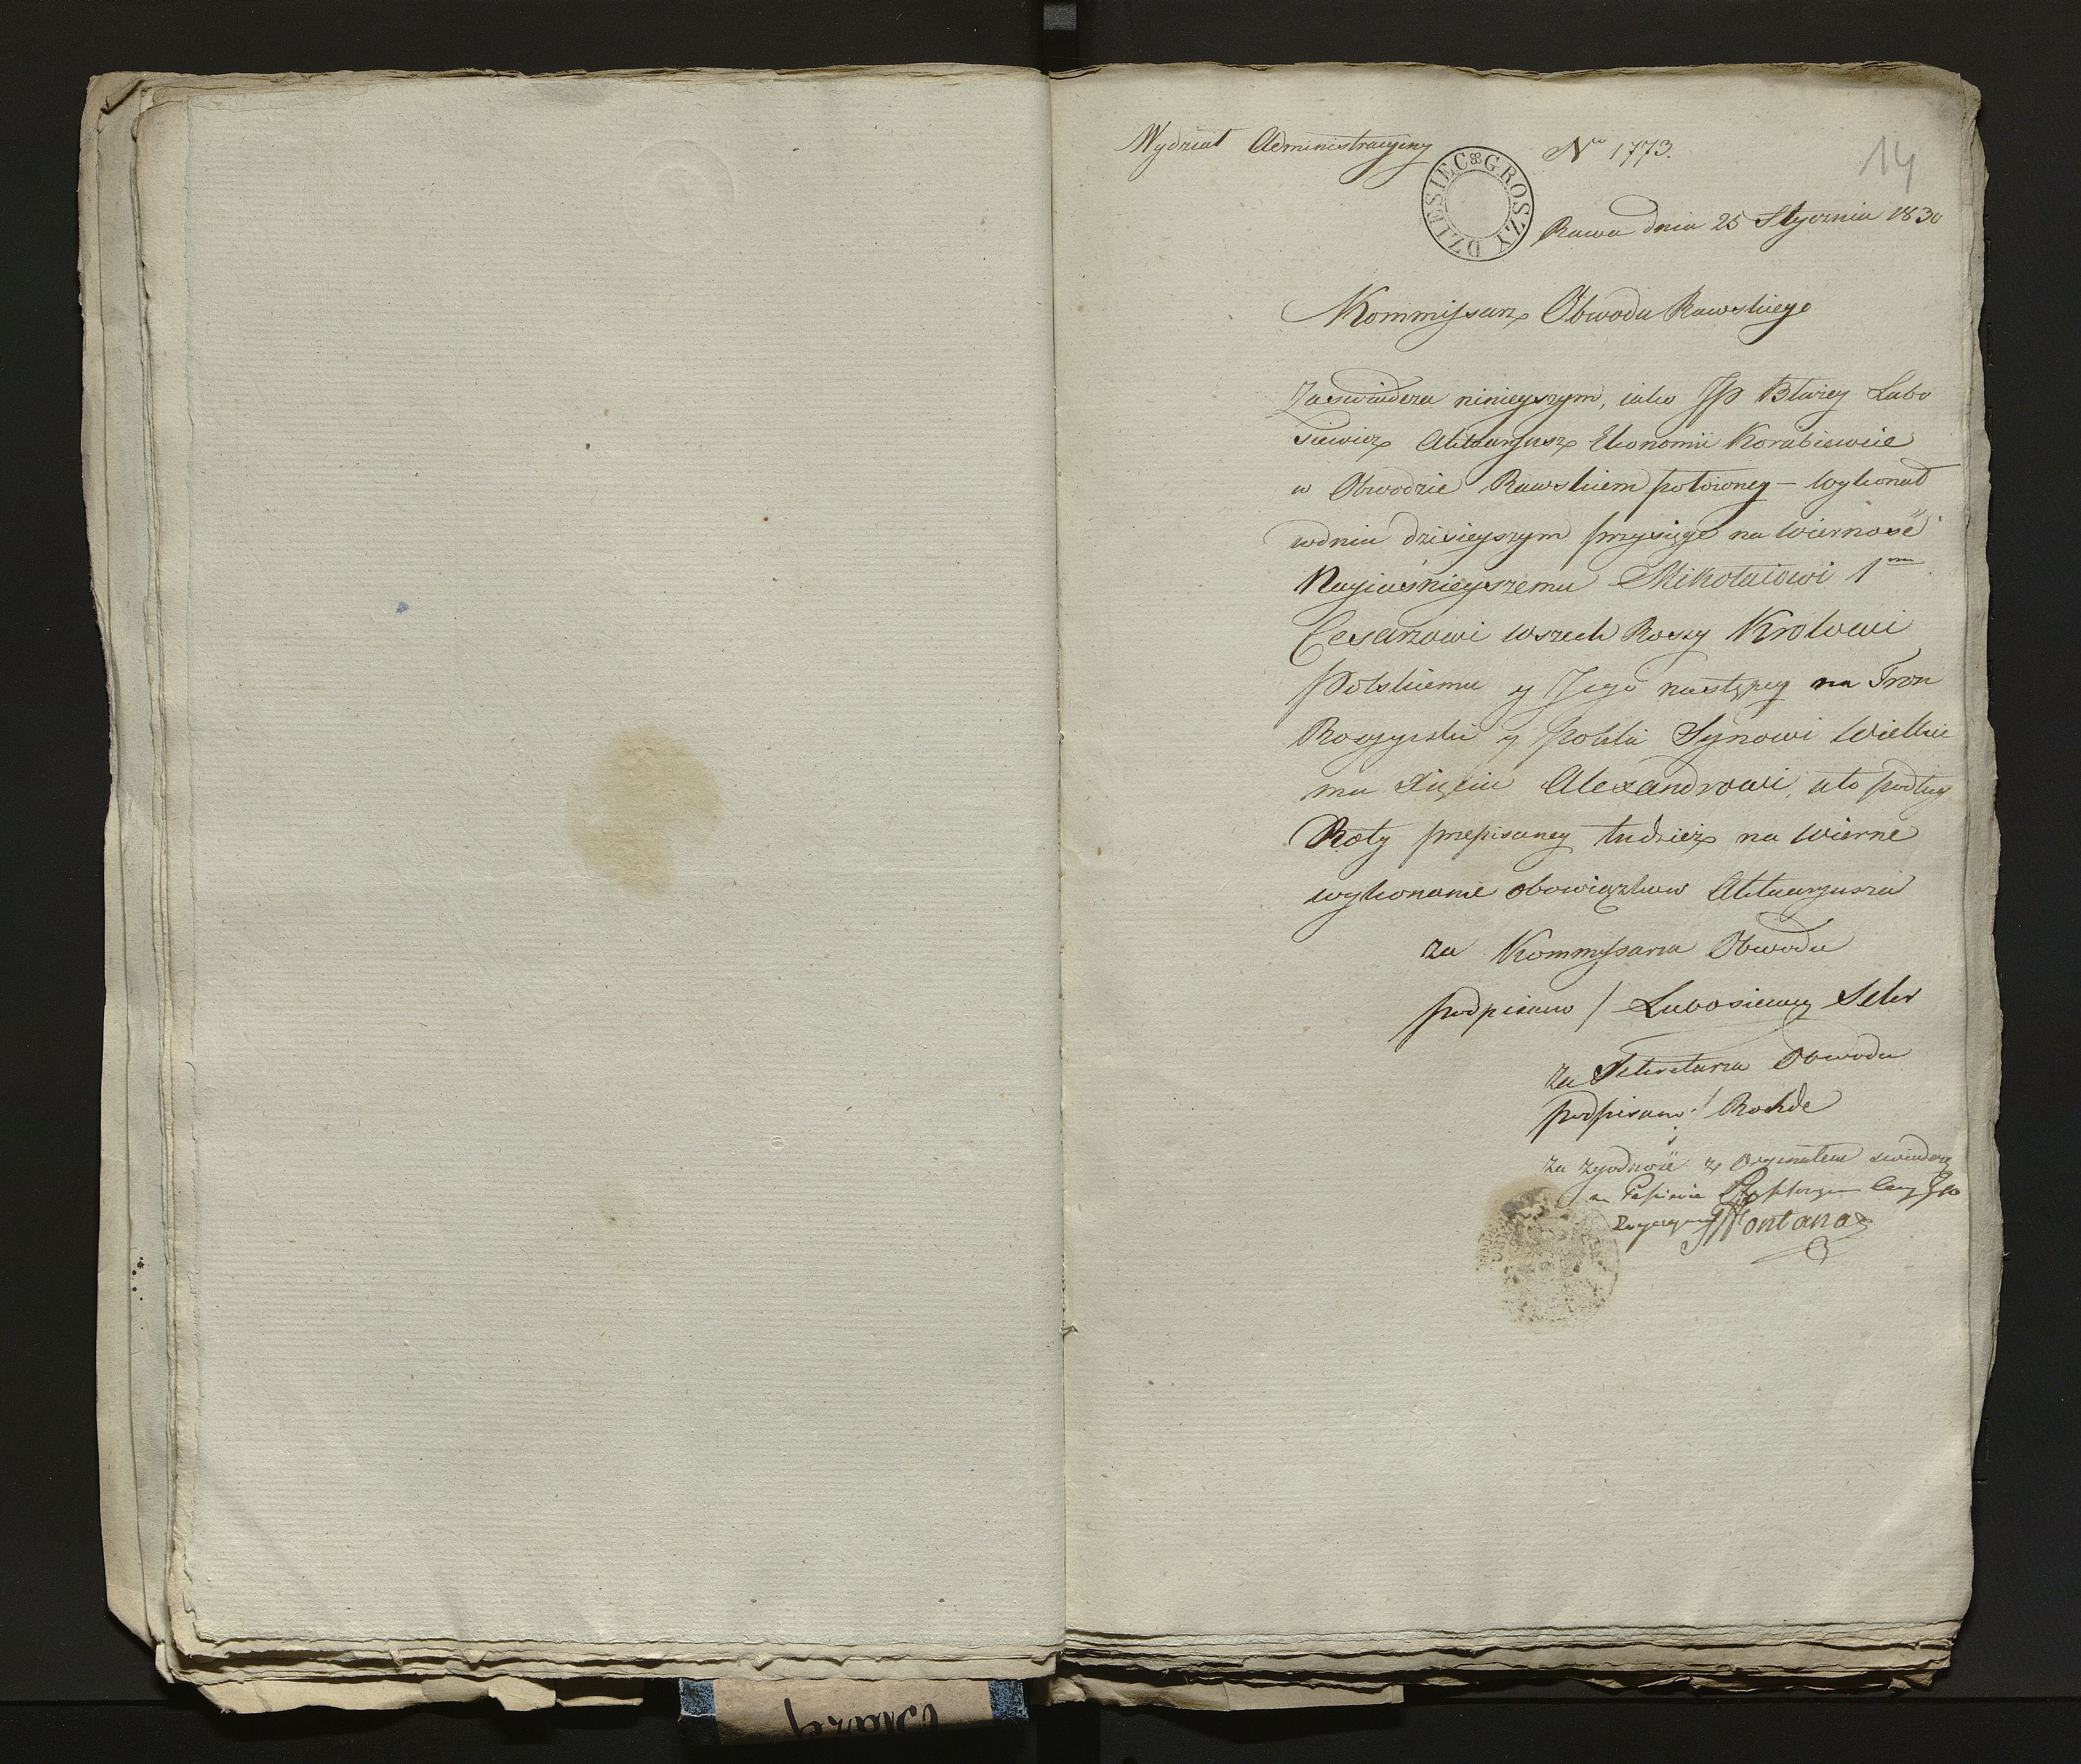 Wydział Administracyiny
Nro 1773.
14
DZIESIEC GROSZY
Rawa dnia 25 Stycznia 1830
Kommissarz Obwodu Rawskiego
Zaswiadcza ninieyszym, iako JP Błażey Lubo
siewicz Aktuaryusz Ekonomii Korabiewice
w Obwodzie Rawskiem położoney – wykonał
wdniu dzisieyszym przysięgę na wierność
Nayiaśnieyszemu Mikołaiowi 1mu
Cesarzowi wszech Rossy Krolowi
Polskiemu y Jego następcy na Tron
Rossyiski y polski Synowi Wielkie
mu Xięciu Alexandrowi, ato podług
Roty przepisaney tudzież na wierne
wykonanie obowiązkow Aktuaryusza
za Kommissarza Obwodu
podpisano / Lubosiewicz Sekr
za Sekretarza Obwodu
podpisano / Rohde
za zgodność z Orginałem swiadczę
Fontana
Błażej